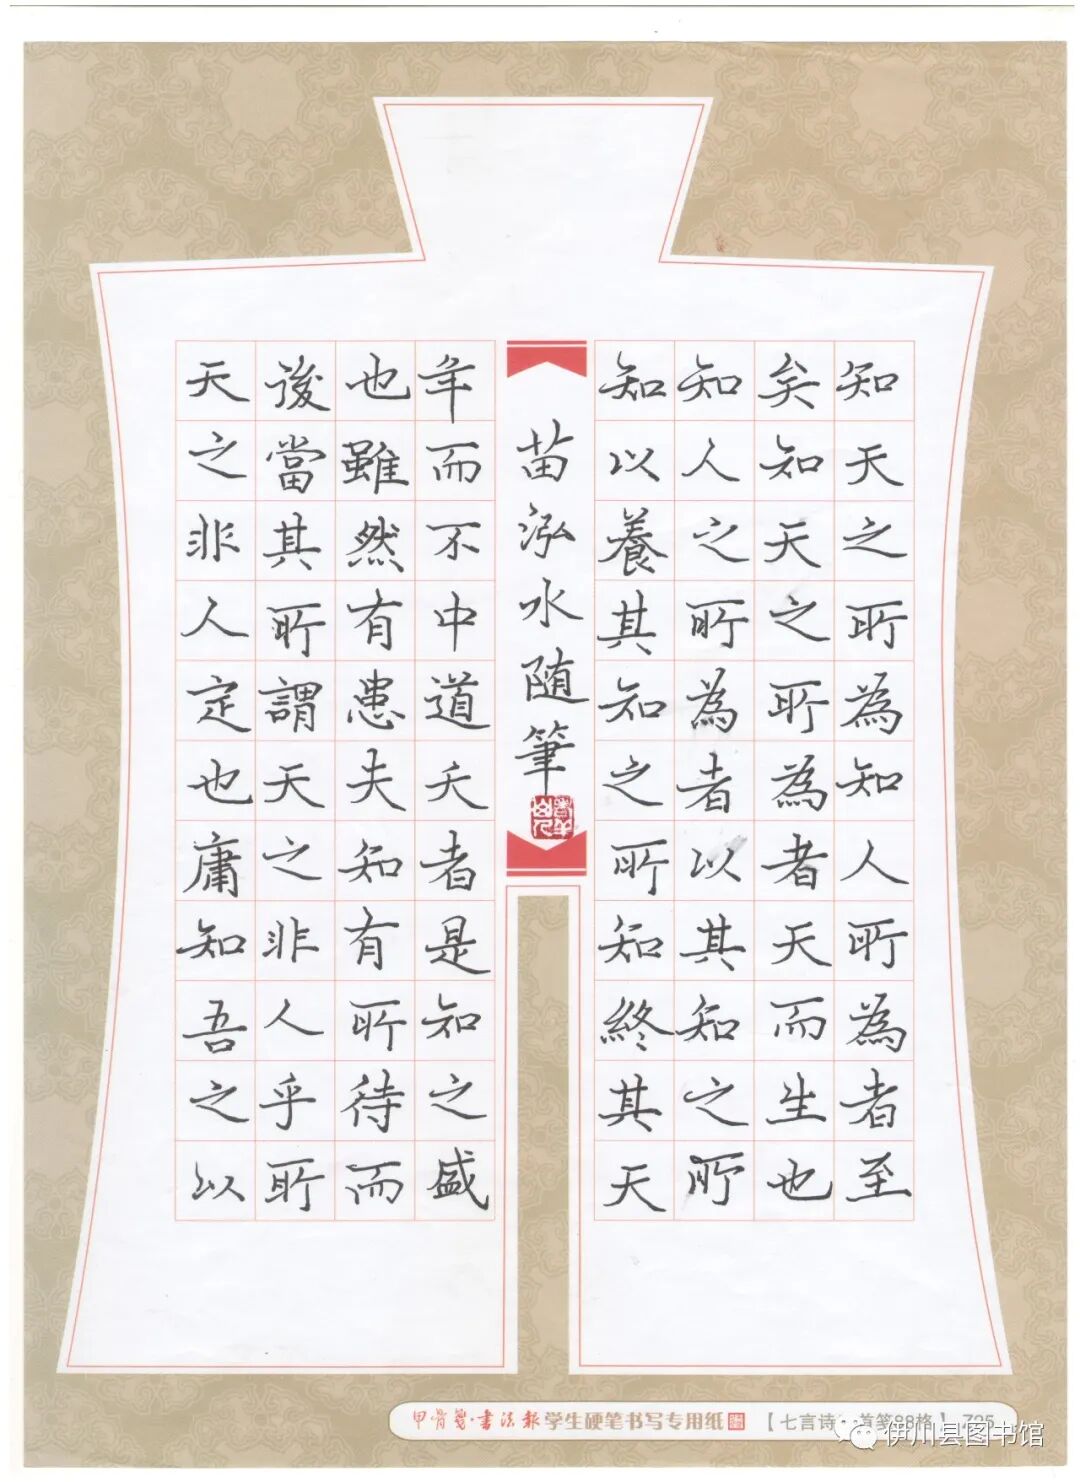 知天之所為知人所為者至
矣知天之所為者天而生也
知人之所為者以其知之所
知以養其知之所知終其天
苗泓水随筆
年而不中道夭者是知之盛
也雖然有患夫知有所待而
後當其所謂天之非人乎所
天之非人定也庸知吾之以
甲骨箋·書法報学生硬笔书写专用纸
【七言诗 首笺88格】
伊川县图书馆